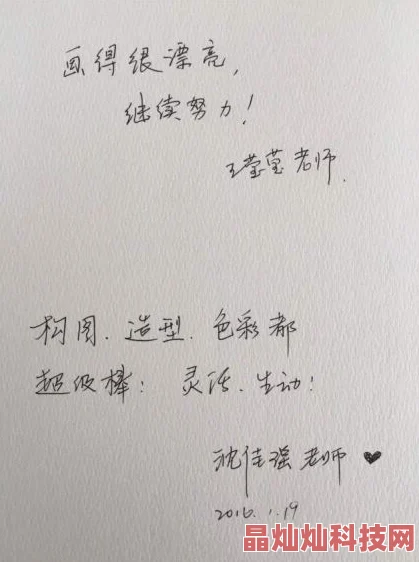 画得很漂亮,
继续努力!
王莹莹老师.
构图.造型.色彩都
超级棒: 灵活.生动!
沈佳强老师 ♥
2016.1.19
晶灿灿科技网